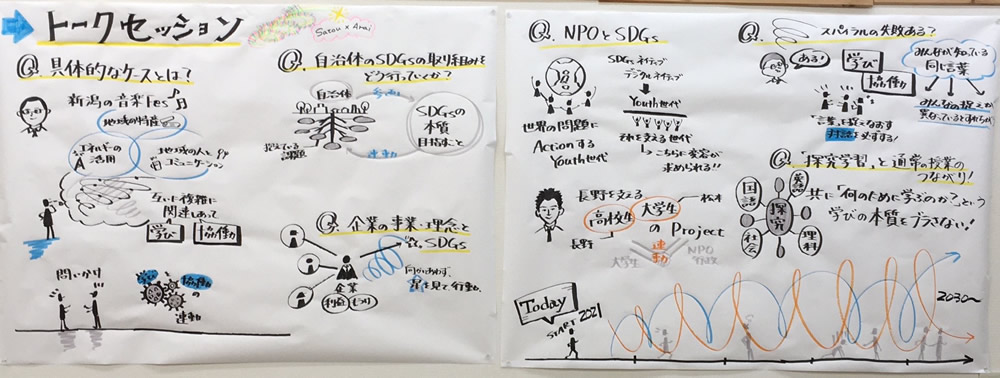 トークセッション
Satou × Arai
Q. 具体的なケースとは?
新潟の音楽Fes
地域の特産
エネルギーの活用
地域の人とコミュニケーション
互いに複雑に
関連しあって
学び 協働
問いかけ
学び 協働の
連動
Q. 自治体のSDGsの取り組みを
どう行っていくか?
自治体
抱えている課題
連動
SDGsの
本質
目指すこと
Q. 企業の事業・理念と
SDGs
企業
利益
何かあわず、
見て行動。
Q. NPOとSDGs
SDGsネイティブ
デジタルネイティブ
Youth世代
それを支える世代
こちらに変容が
求められる!!
世界の問題に
Actionする
Youth世代
長野を支える
高校生 大学生
のProject
松本
長野
連動
大学生
NPO
Q. スパイラルの失敗ある?
ある!
学び
協働
みんなが知っている
同じ言葉
みんなの捉え方が
異なっているとずれちがう
「言葉」を捉えなおす
対話を必ずする!
Q. 「探究学習」と通常の授業の
つながり!
国語
英語
探究
社会
理科
共に「何のために学ぶのか?」という
学びの本質をブラさない!
Today
START 2021
2030~